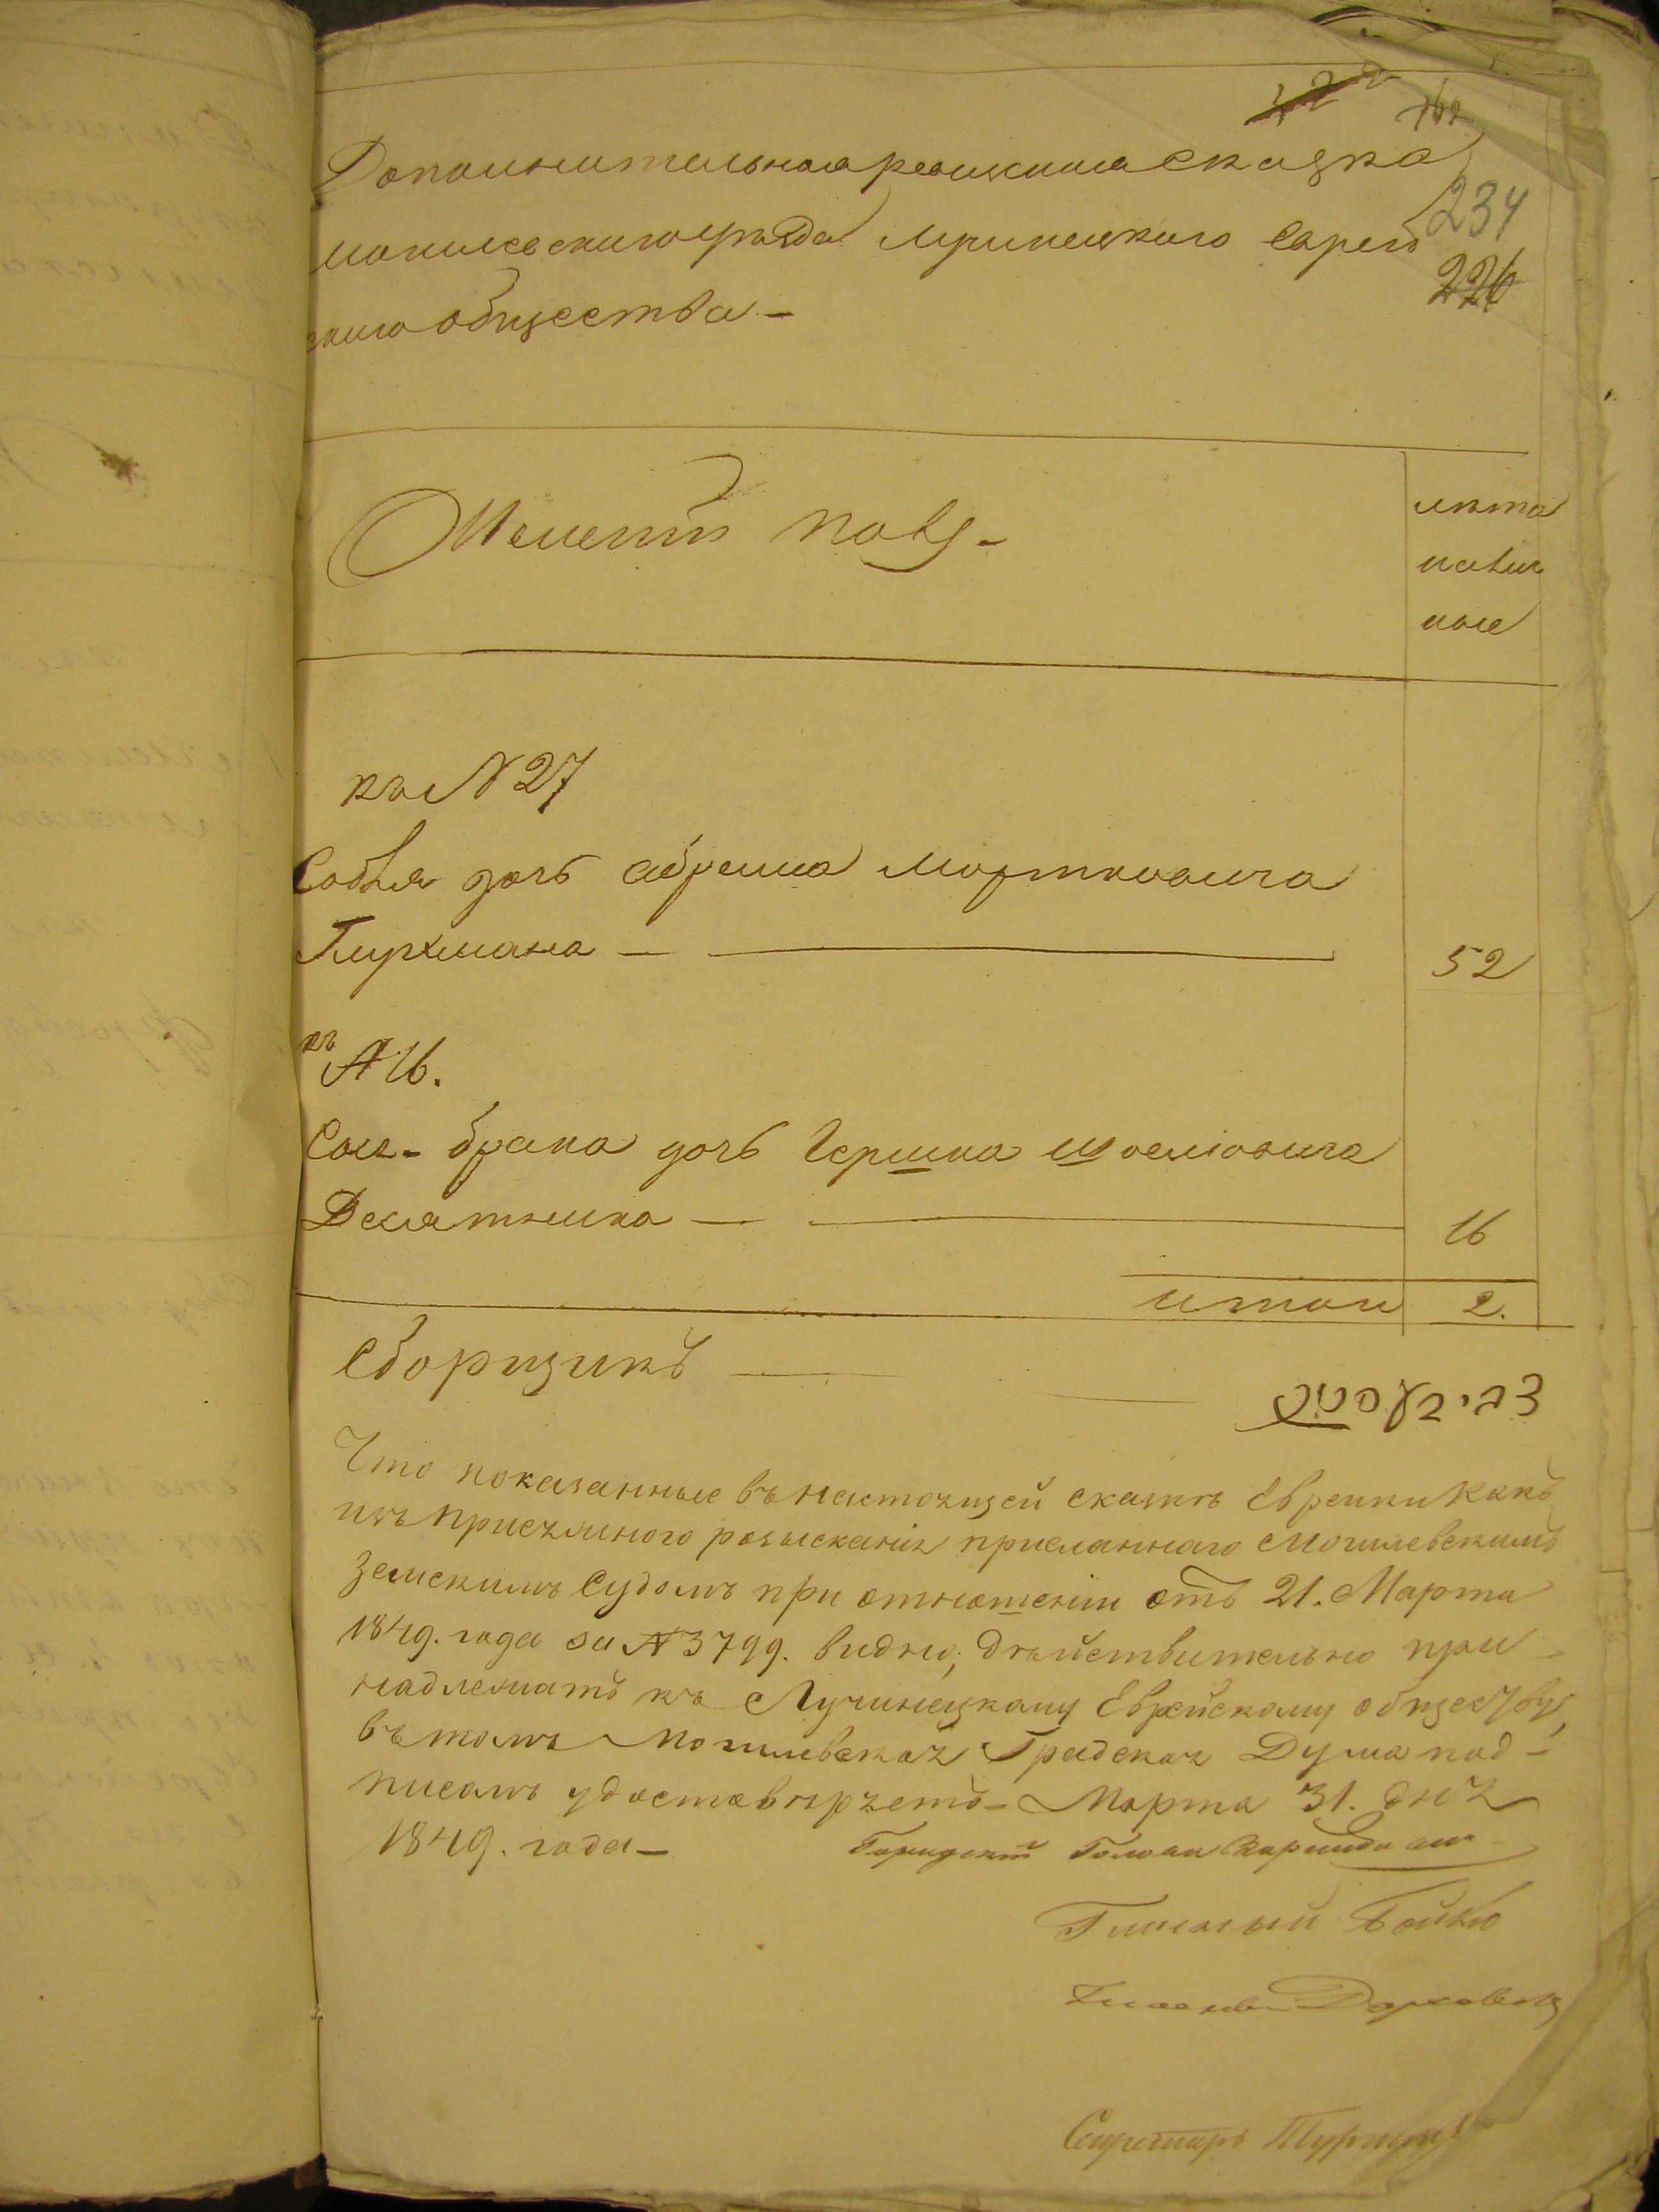 162
Дополнительная ревизкная сказка
234
могилевского уезда Лучинецкого еврей
226
ского общества -
Женскій полъ -
лета
налич
ное
къ N 27
дочь Абрама Мортковича
Гиухмана
52
къ N 16.
дочь Гершка Шоеліовича
Десятника
16
итого 2.
Сборщикъ
Что показанные въ настоящей сказкѣ Евреики какъ
изъ присяжного розысканія присланнаго Могилевскимъ
Земскимъ Судомъ при отношеніи отъ 21. Марта
1849. года за N 3799. видно, дѣйствительно при
надлежатъ къ Лучинецкому Еврейскому обществу,
въ томъ Могилевская Градская Дума под-
писомъ удостовѣряетъ - Марта 31. дня
1849. года -
Городской Голова
Гласный Бойко
Гласный
Секретарь